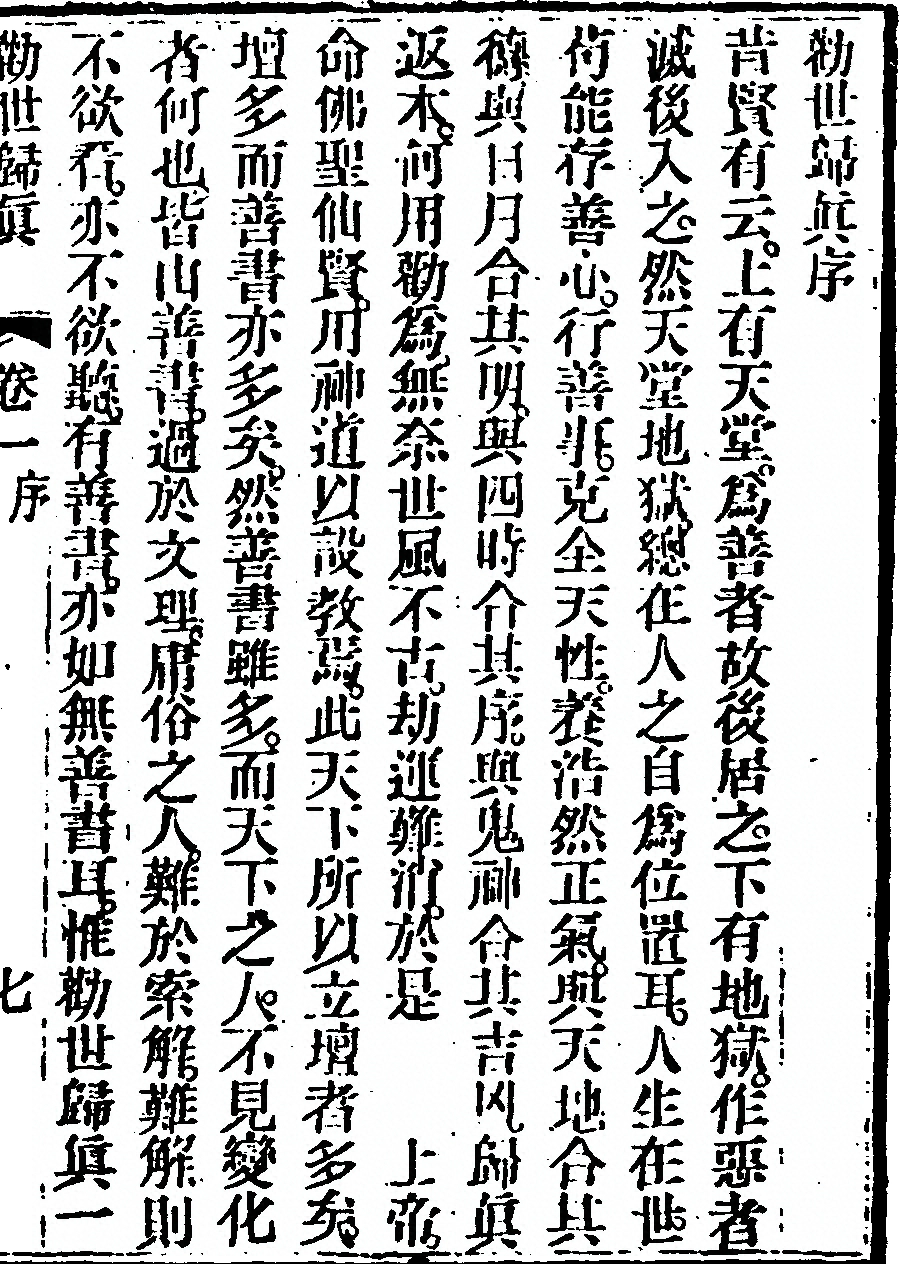 勸世歸眞序
昔賢有云。上有天堂。爲善者故後居之。下有地獄。作惡者
滅後入之。然天堂地獄。總在人之自爲位置耳。人生在世。
苟能存善心。行善事。克全天性。養浩然正氣。與天地合其
德。與日月合其明。與四時合其序。與鬼神合其吉凶。歸眞
返本。何用勸爲。無奈世風不古。劫運難消。於是　　上帝。
命佛聖仙賢。用神道以設教焉。此天下所以立壇者多矣。
壇多而善書亦多矣。然善書雖多。而天下之人。不見變化
者何也。皆由善書。過於文理。庸俗之人。難於索解。難解則
不欲看。亦不欲聽。有善書。亦如無善書耳。惟勸世歸眞一
勸世歸眞　卷一　序　七